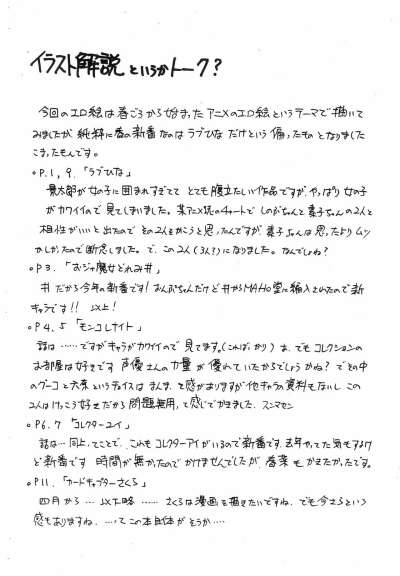 イラスト解説 というかトーク?
今回のエロ絵は春ごろから始まったアニメのエロ絵というテーマで描いて
みましたが 純粋に春の新番なのは ラブひな だけという 偏ったものとなりました
こまったもんです。
○P.1,9.「ラブひな」
景太郎が女の子に囲まれすぎてて とても腹立たしい作品ですが、やっぱり 女の子
がカワイイので 見てしまいました。某アニメ誌のチャートで しのぶちゃんと素子ちゃんの2人と
相性がいいと出たので その2人をかこうと思ったんですが 素子ちゃんは思ったよりムツ
かしかったので断念しました。で、この2人(3人?)になりました。なんでしょね?
○P3.「おジャ魔女どれみ#」
#だから今年の新番です! おんぷちゃんだけど #からMAHO堂に編入されたので新
キャラです!! 以上!
○P4.5「モンコレナイト」
話は……ですがキャラがカワイイので 見てます。(こればっかり) ま、でもコレクションの
お部屋は好きです 声優さんの力量が優れていたからでしょうかね? でその中
のグーコと六茶というチョイスは って感がありますが他キャラの資料もないし この
2人はけっこう好きだから問題無用、って感じでかきました、スンマセン
○P6.7「コレクターユイ」
話は…同上ってことで、これもコレクターアイがいるので新番です。去年やってた気もするけ
ど新番です 時間が無かったので かけませんでしたが、春菜もかきたかったです。
○P11.「カードキャプターさくら」
四月から…以下略……さくらは漫画を描きたいですね、でも今さらという
感もありますね、…ってこの本自体がそうか……